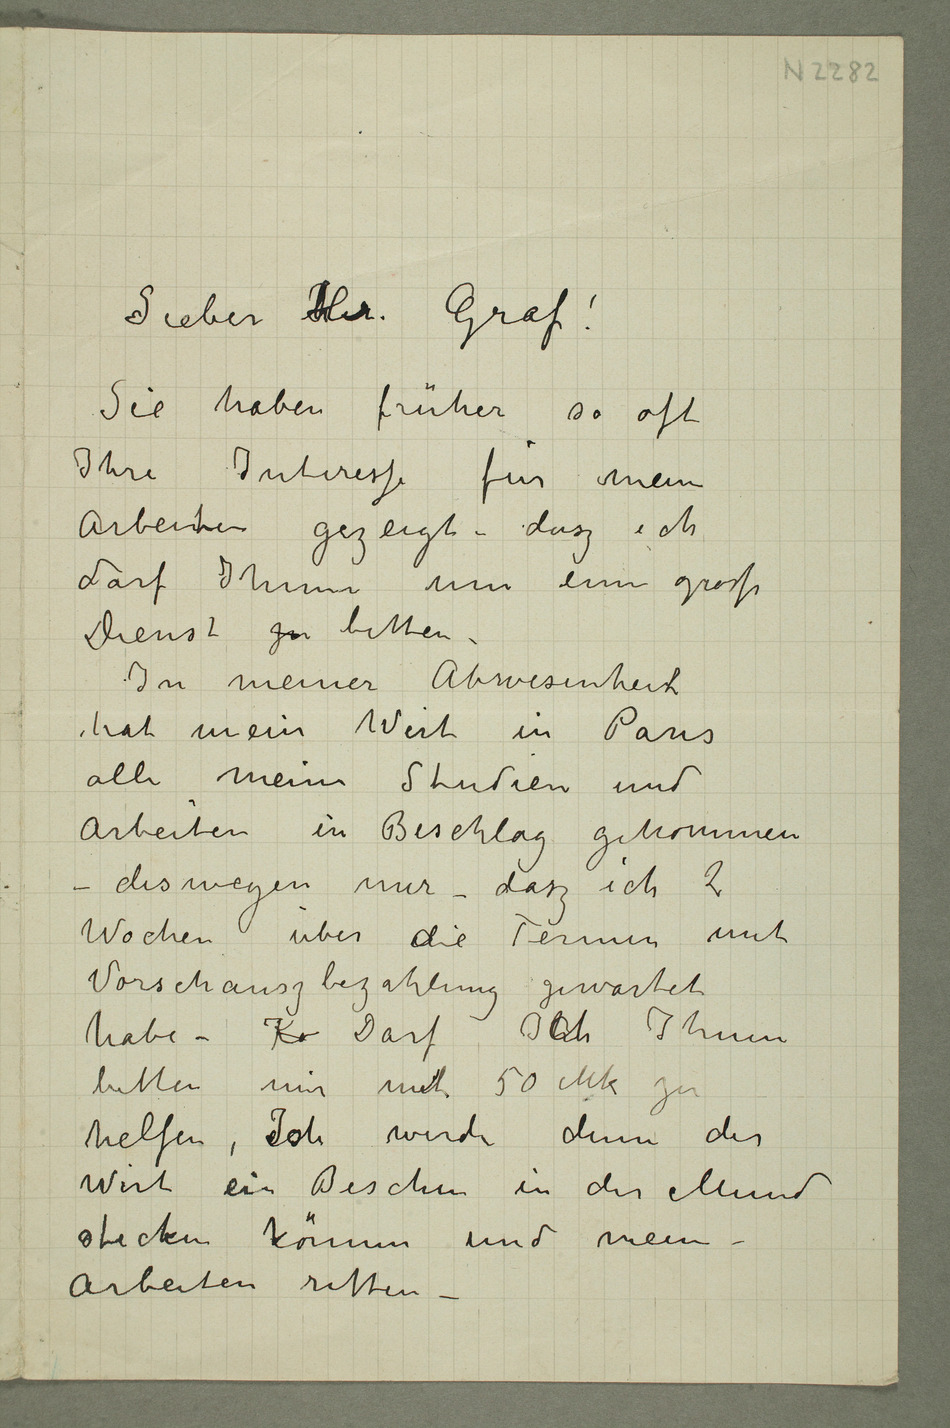 N 2282
Lieber Hr. Graf!
Sie haben früher so oft
Ihre Interesse für mein
Arbeiten gezeigt – dasz ich
darf Ihnen um einen grosse
Dienst zu bitten –
In meiner Abwesenheit
hat mein Wirt in Paris
alle meine Studien und
Arbeiten in Beschlag gekommen
– deswegen nur – dasz ich 2
Wochen über die Termin mit
Vorschauszbezahlung gewartet
habe – Darf Ich Ihnen
bitten mir mit 50 Mk zu
helfen, Ich werde denn der
Wirt ein Beschen in der Mund
stecken können und mein –
Arbeiten retten –